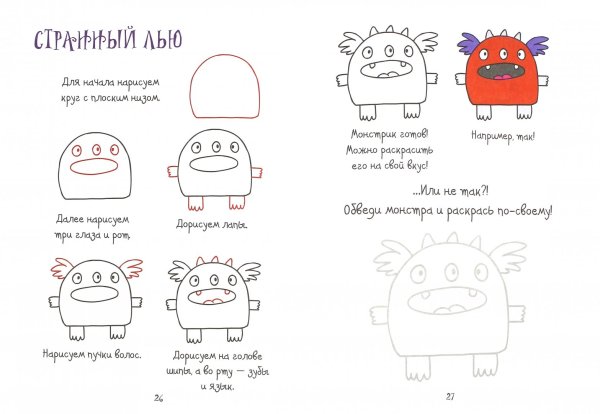 СТРАННЫЙ ЛЬЮ
Для начала нарисуем
круг с плоским низом.
Далее нарисуем
три глаза и рот,
Дорисуем лапы.
Нарисуем пучки волос.
Дорисуем на голове
шипы, а во рту — зубы
и язык.
26
Монстрик готов!
Можно раскрасить
его на свой вкус!
Например, так!
...Или не так?!
Обведи монстра и раскрась по-своему!
27